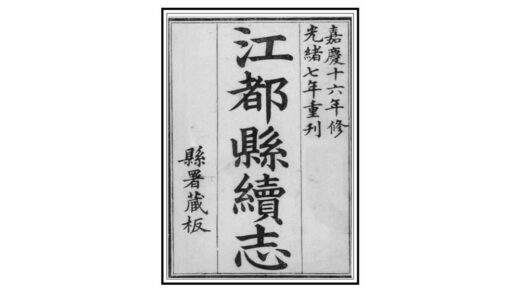 嘉慶十六年修
光緒七年重刊
江都縣續志
縣署蔵板